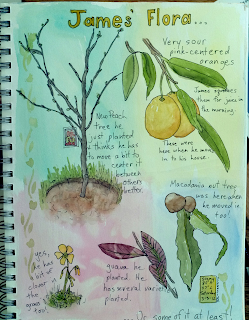 James' Flora...
Very sour
pink-centered
oranges
James squeezes
them for juice in
the morning.
These were
here when he moved
in to his house.
New Peach
tree he
just planted
thinks he has
to move a bit to
center it
between
others
better.
Macadamia nut tree
was here when
he moved in
too!
yes,
he has
a bit of
clover in
the
grass
too!
guava he
planted. He
has several varieties
planted.
...Or some of it at least!